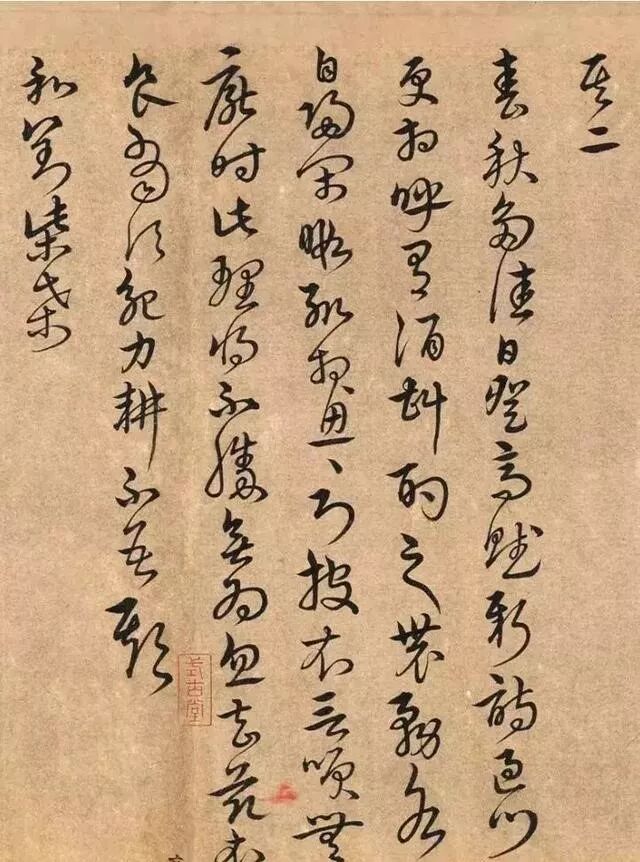 其二
春秋多佳日登高賦新詩過門
更相呼有酒斟酌之農務各
自歸閑暇輒相思〻則披衣言笑無
厭時此理將不勝無為忽去茲衣
食當須紀力耕不吾欺
和劉柴桑
式古堂